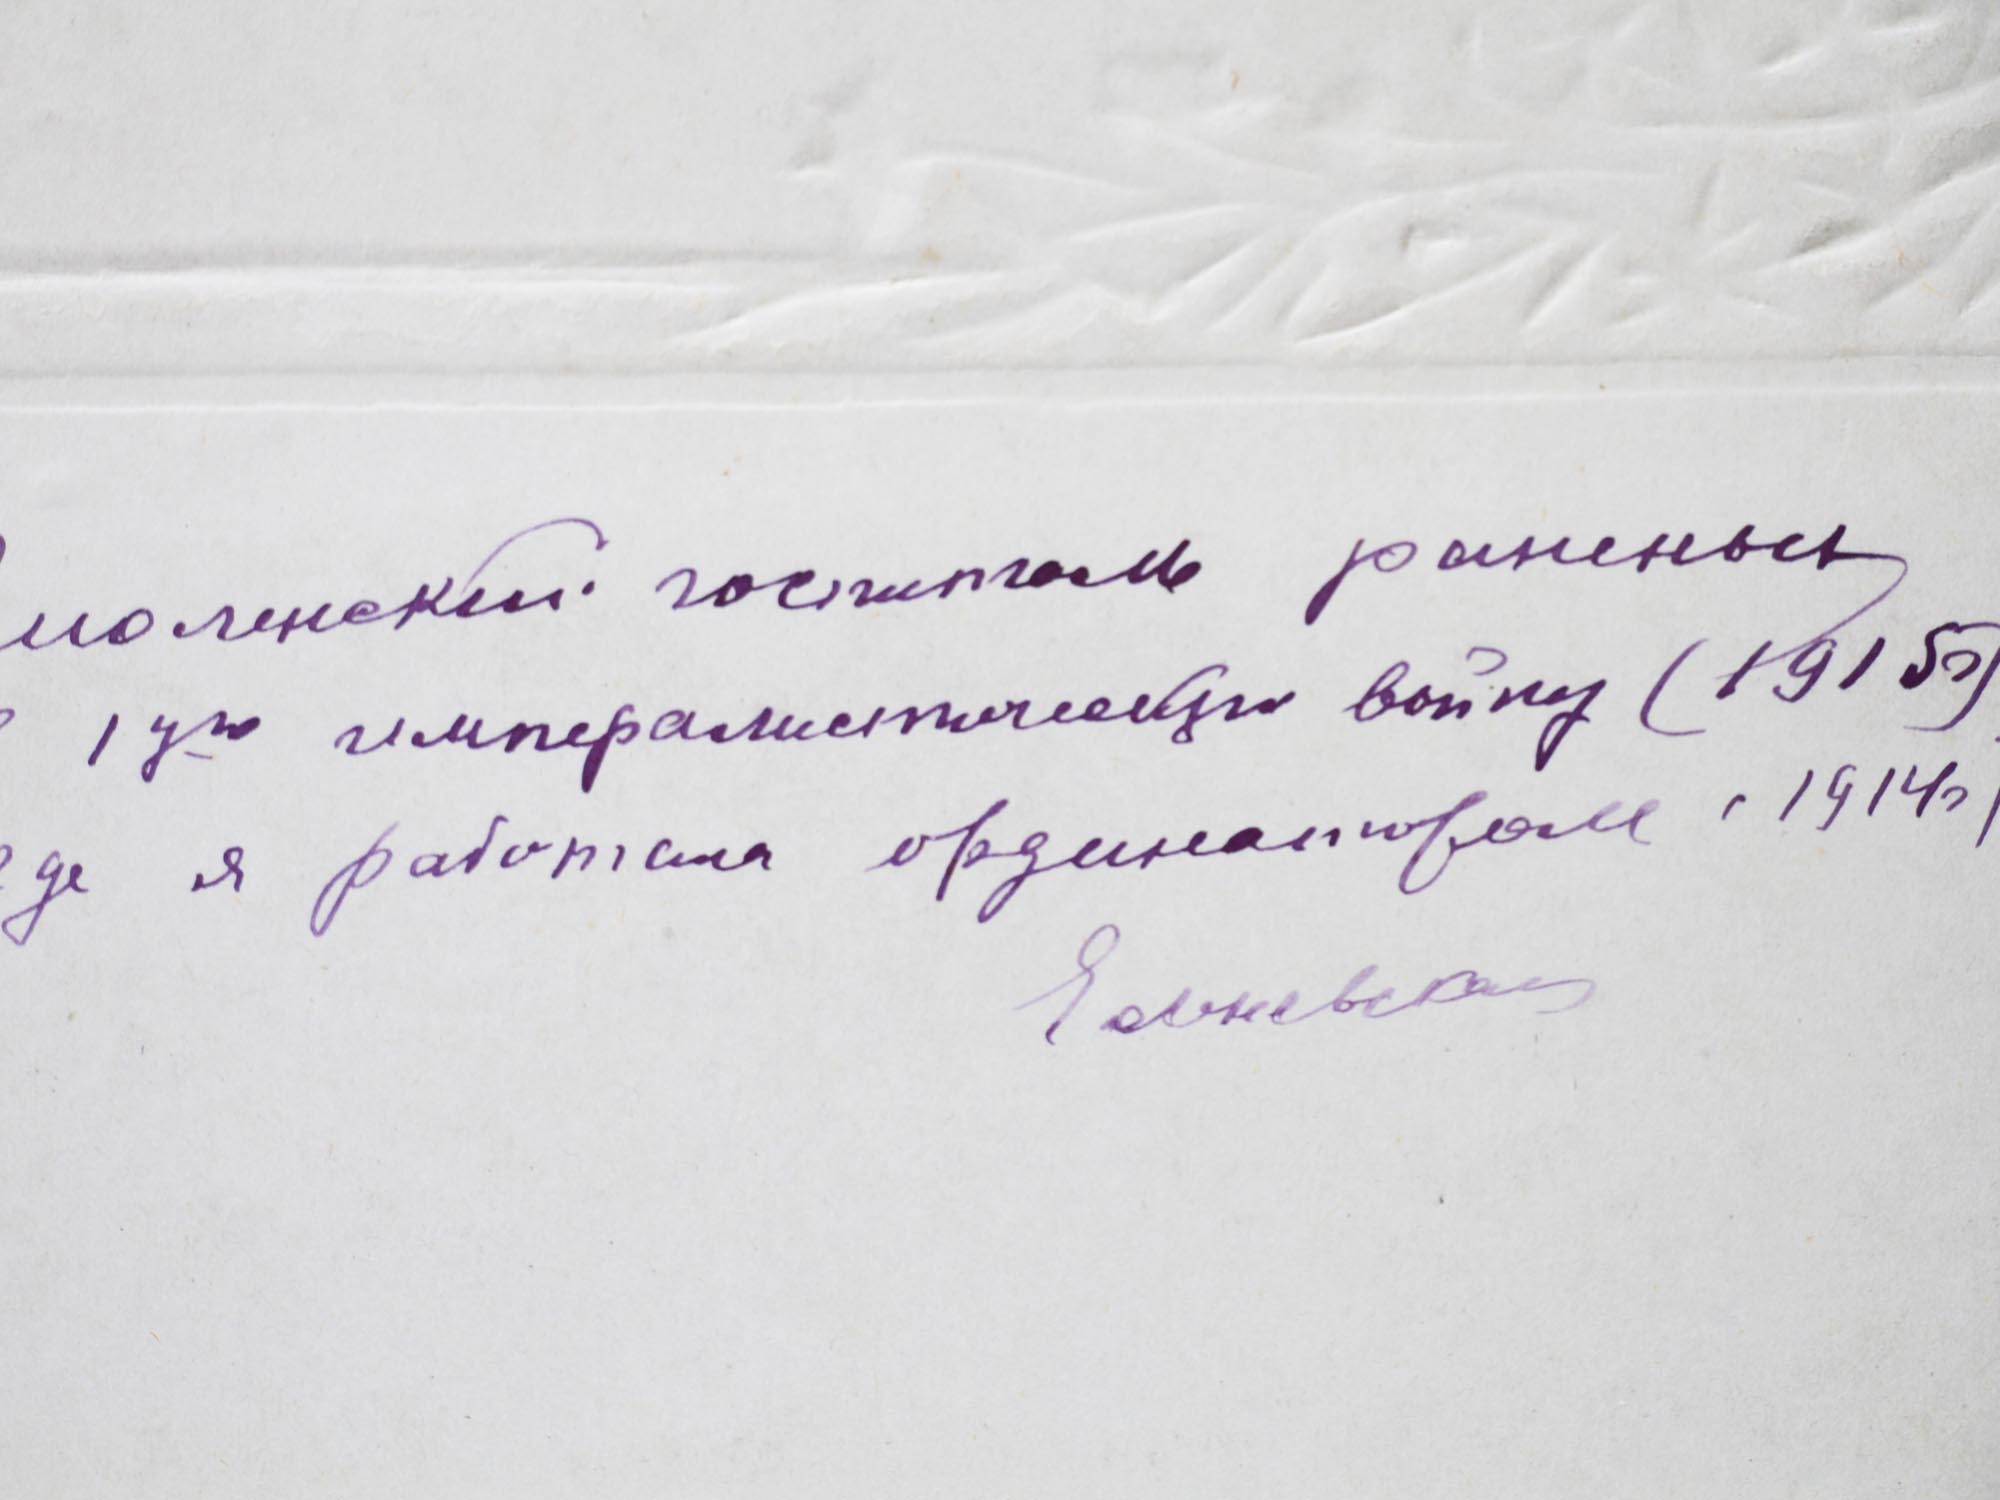 Смоленский госпиталь раненых
в 1ую империалистическую войну (1915г)
где я работала ординатором с 1914г